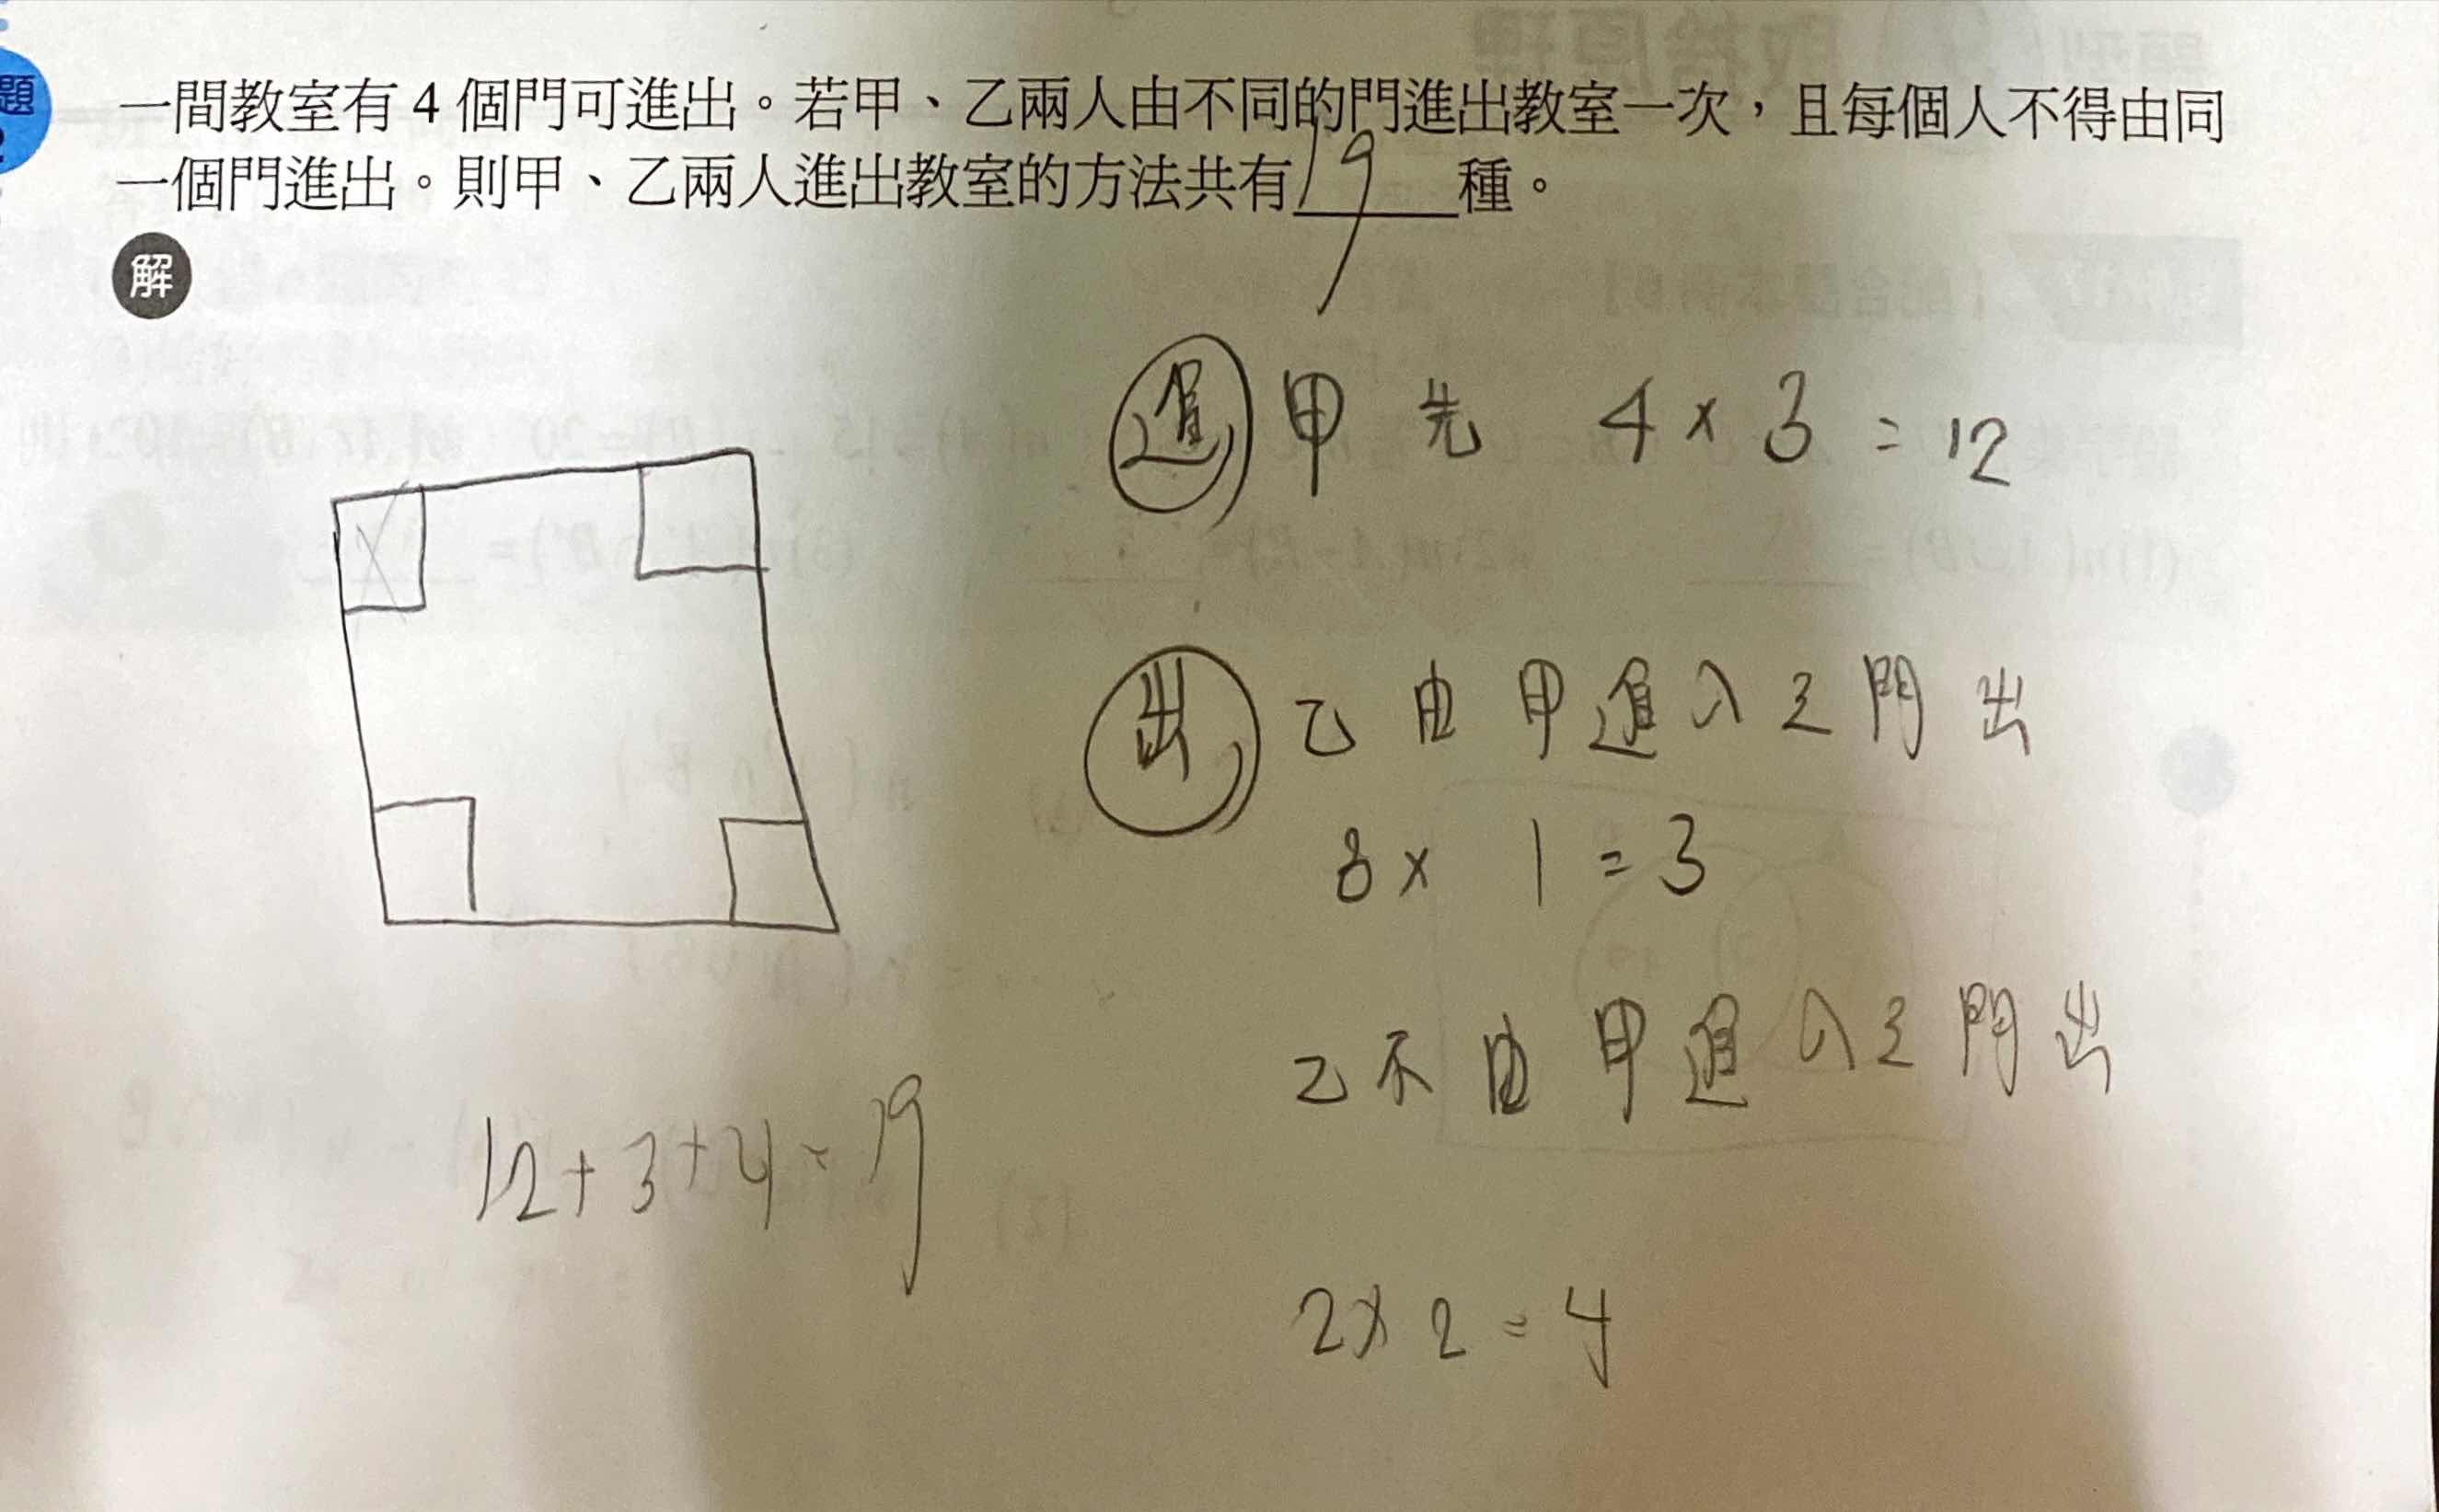 題
一間教室有 4 個門可進出。若甲、乙兩人由不同的門進出教室一次，且每個人不得由同
一個門進出。則甲、乙兩人進出教室的方法共有 19 種。
解
進 甲先 4 × 3 = 12
出 乙由甲進入之門出
3 × 1 = 3
乙不由甲進入之門出
12 + 3 + 4 = 19
2 × 2 = 4